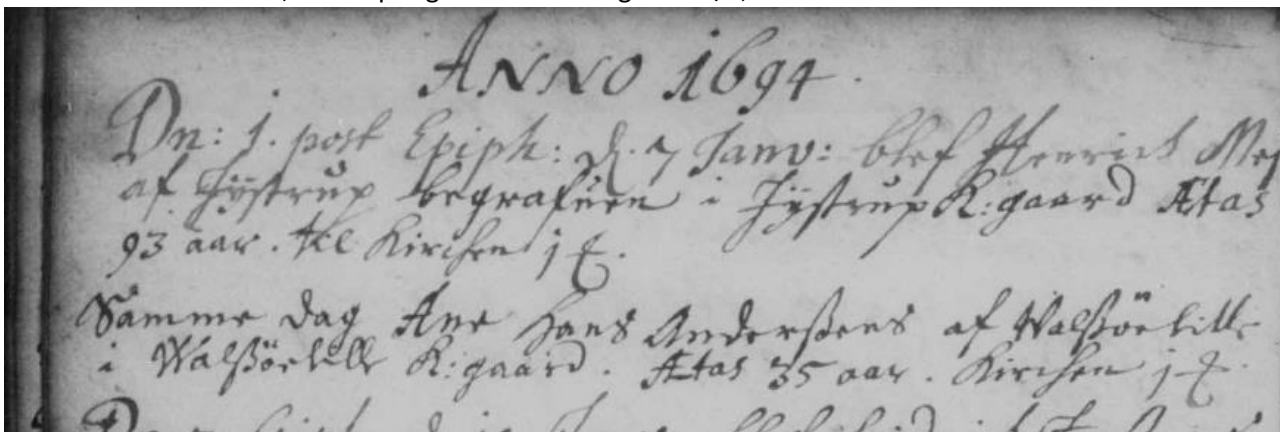 ANNO 1694.
Dn: 1. post Epiph: d. 7 Janv: blef Henrich
af Jystrup begrafuen i Jystrup K:gaard Ætas
93 aar. til Kirchen j
Samme dag Ane Hans Anderßens af Walßöelille
i Walßöelille K:gaard. Ætas 35 aar. Kirchen j